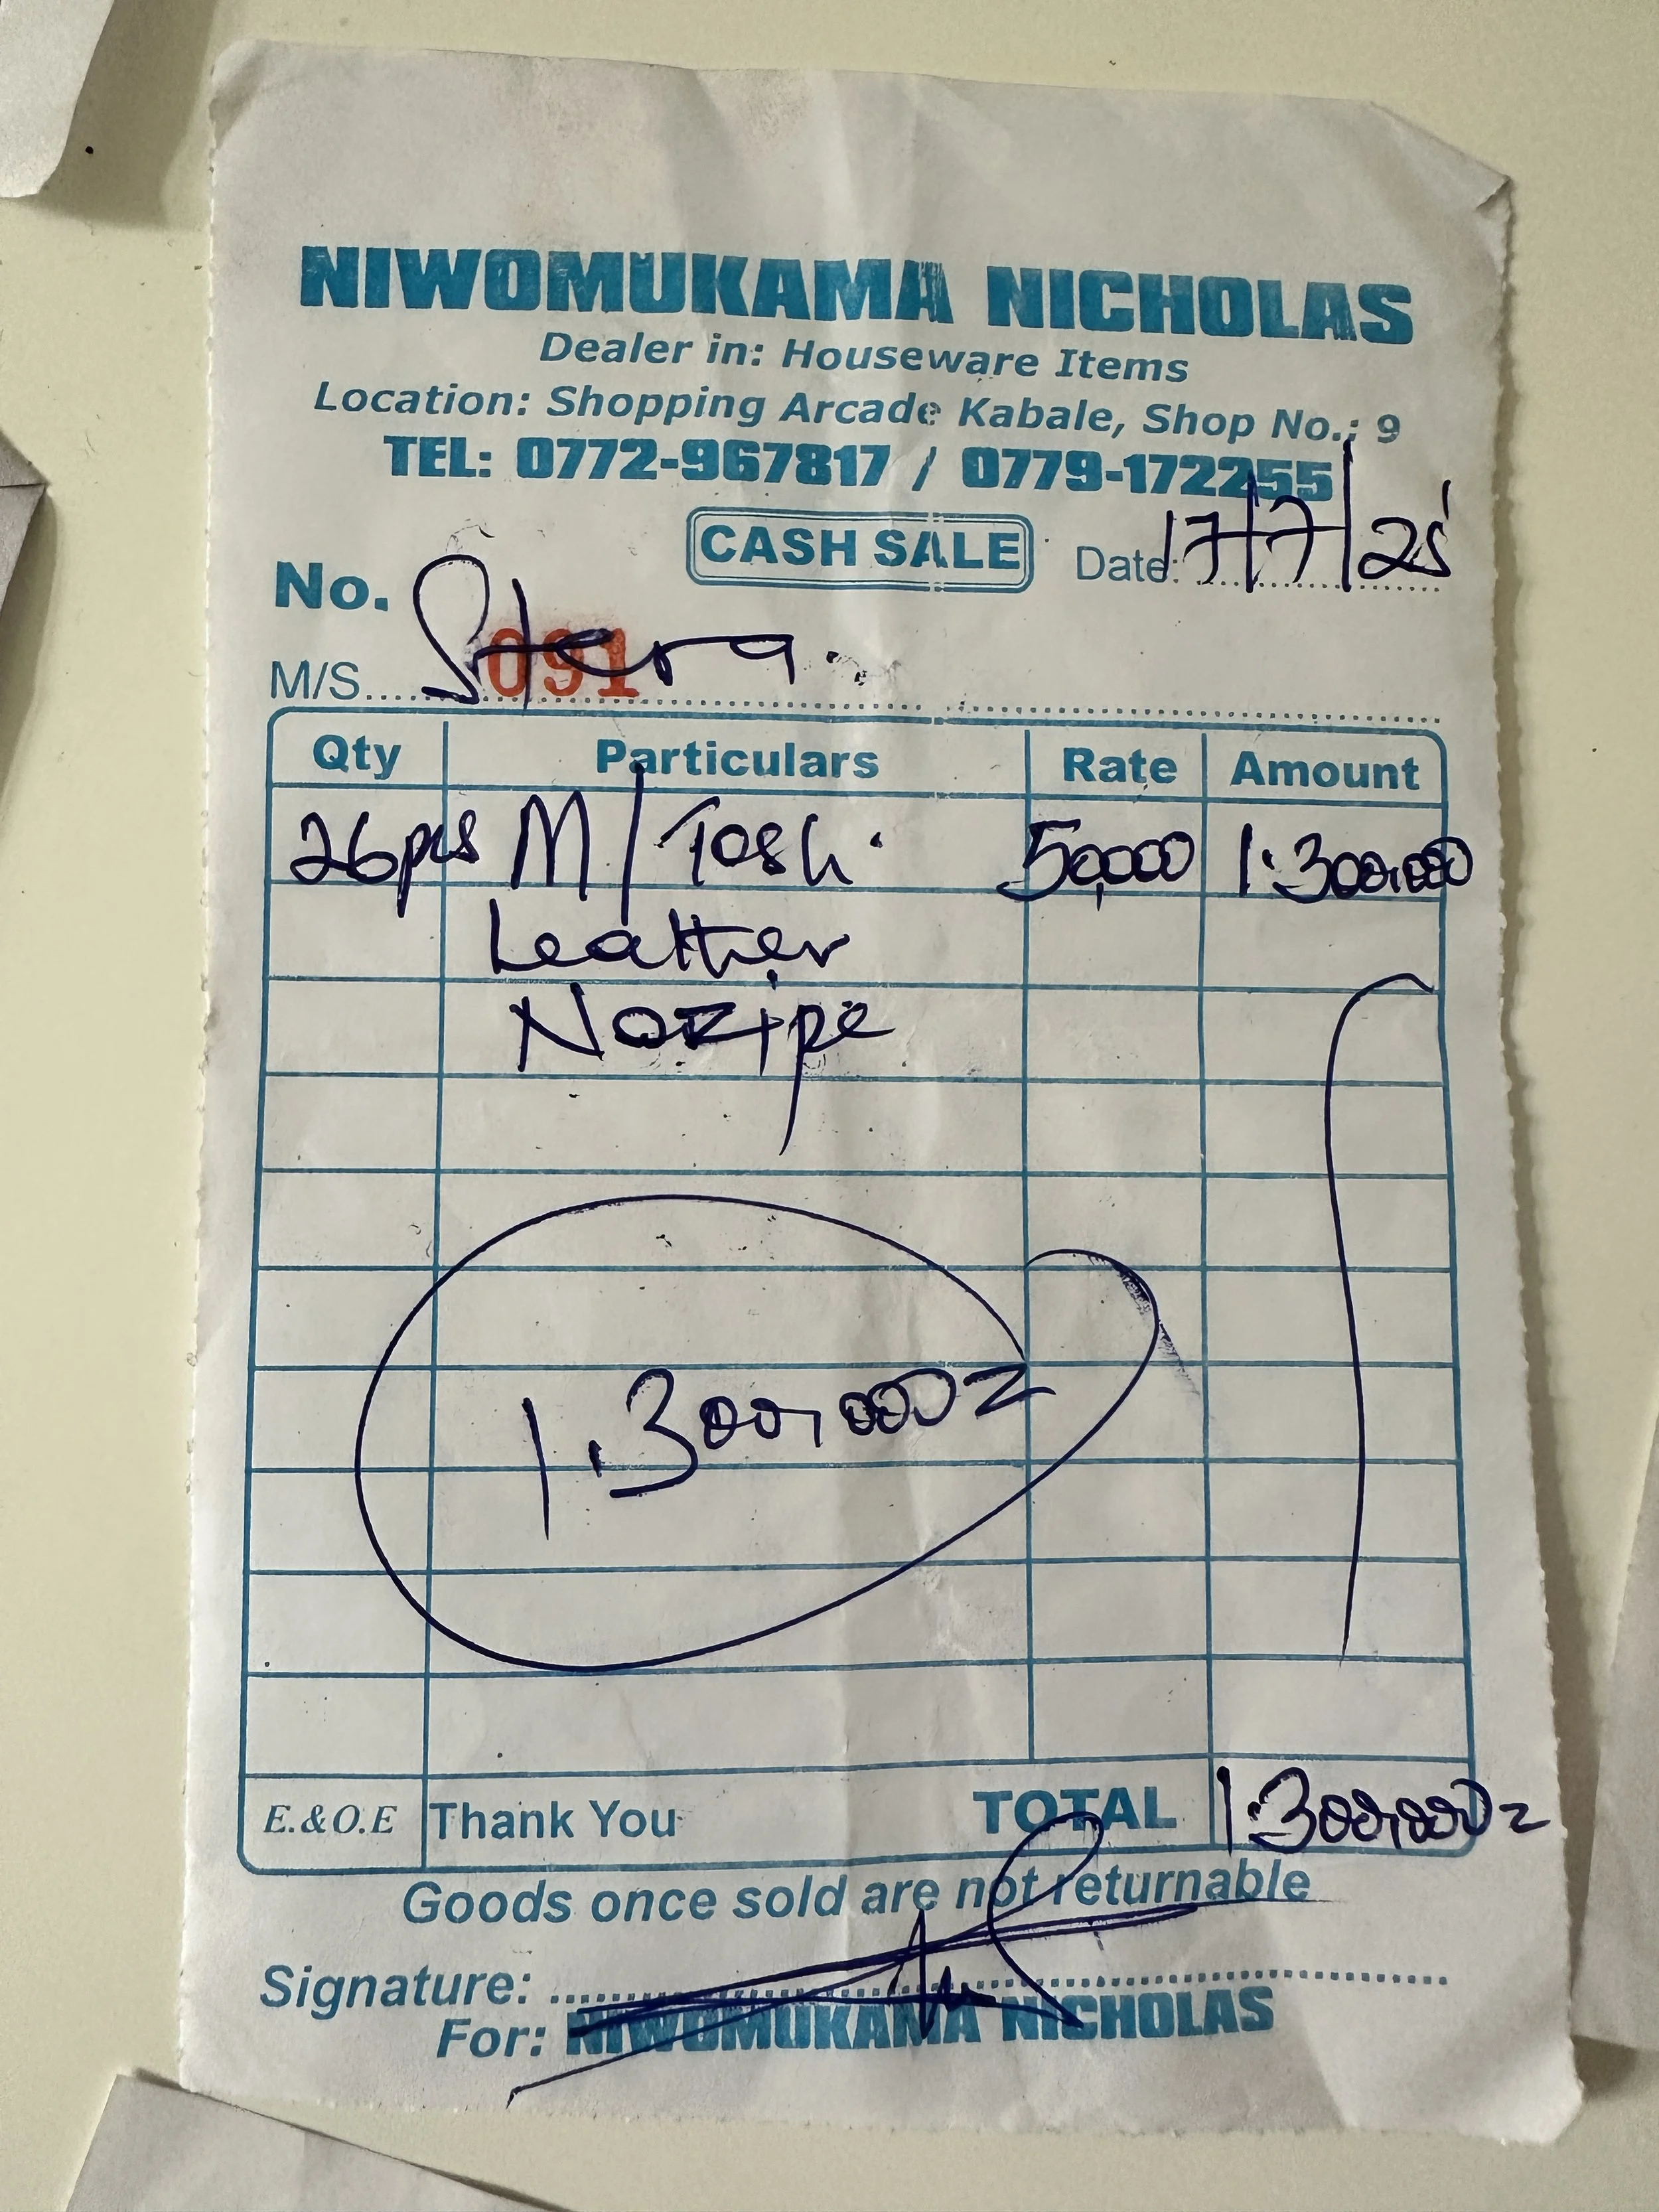 NIWOMUKAMA NICHOLAS
Dealer in: Houseware Items
Location: Shopping Arcade Kabale, Shop No.: 9
TEL: 0772-967817 / 0779-172255
CASH SALE
Date: 17/7/25
No. 091
M/S. Stera.
Qty Particulars Rate Amount
26pcs M/Tosh. 50,000 1.300,000
Leather
Nozipe
1.300,000=
E.&O.E Thank You TOTAL 1.300,000=
Goods once sold are not returnable
Signature:
For: NIWOMUKAMA NICHOLAS